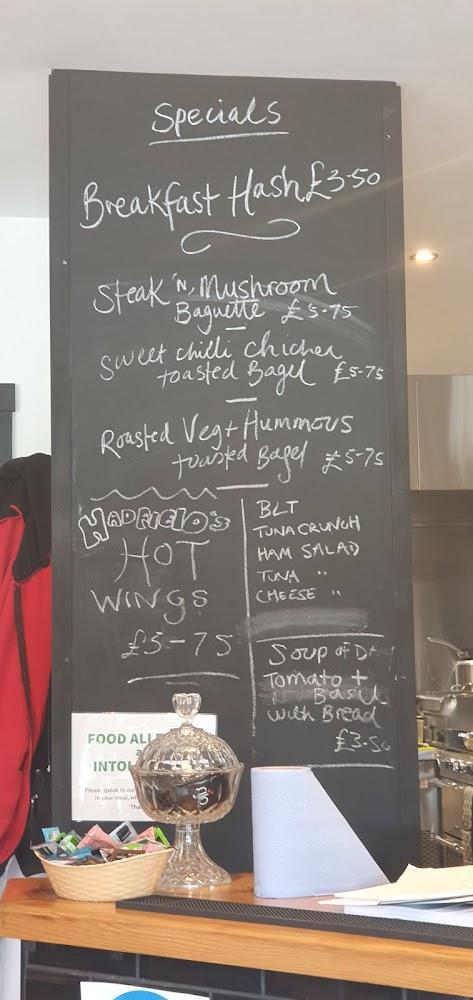 Specials
Breakfast Hash £3-50
Steak 'N' Mushroom
Baguette £5-75
Sweet chilli chicken
toasted Bagel £5-75
Roasted Veg + Hummous
toasted Bagel £5-75
HADFIELD'S
HOT
WINGS
£5-75
BLT
TUNA CRUNCH
HAM SALAD
TUNA "
CHEESE "
Soup of Day
Tomato +
Basil
with Bread
£3-50
FOOD
INTOL
Please speak to our
in your meal, wh